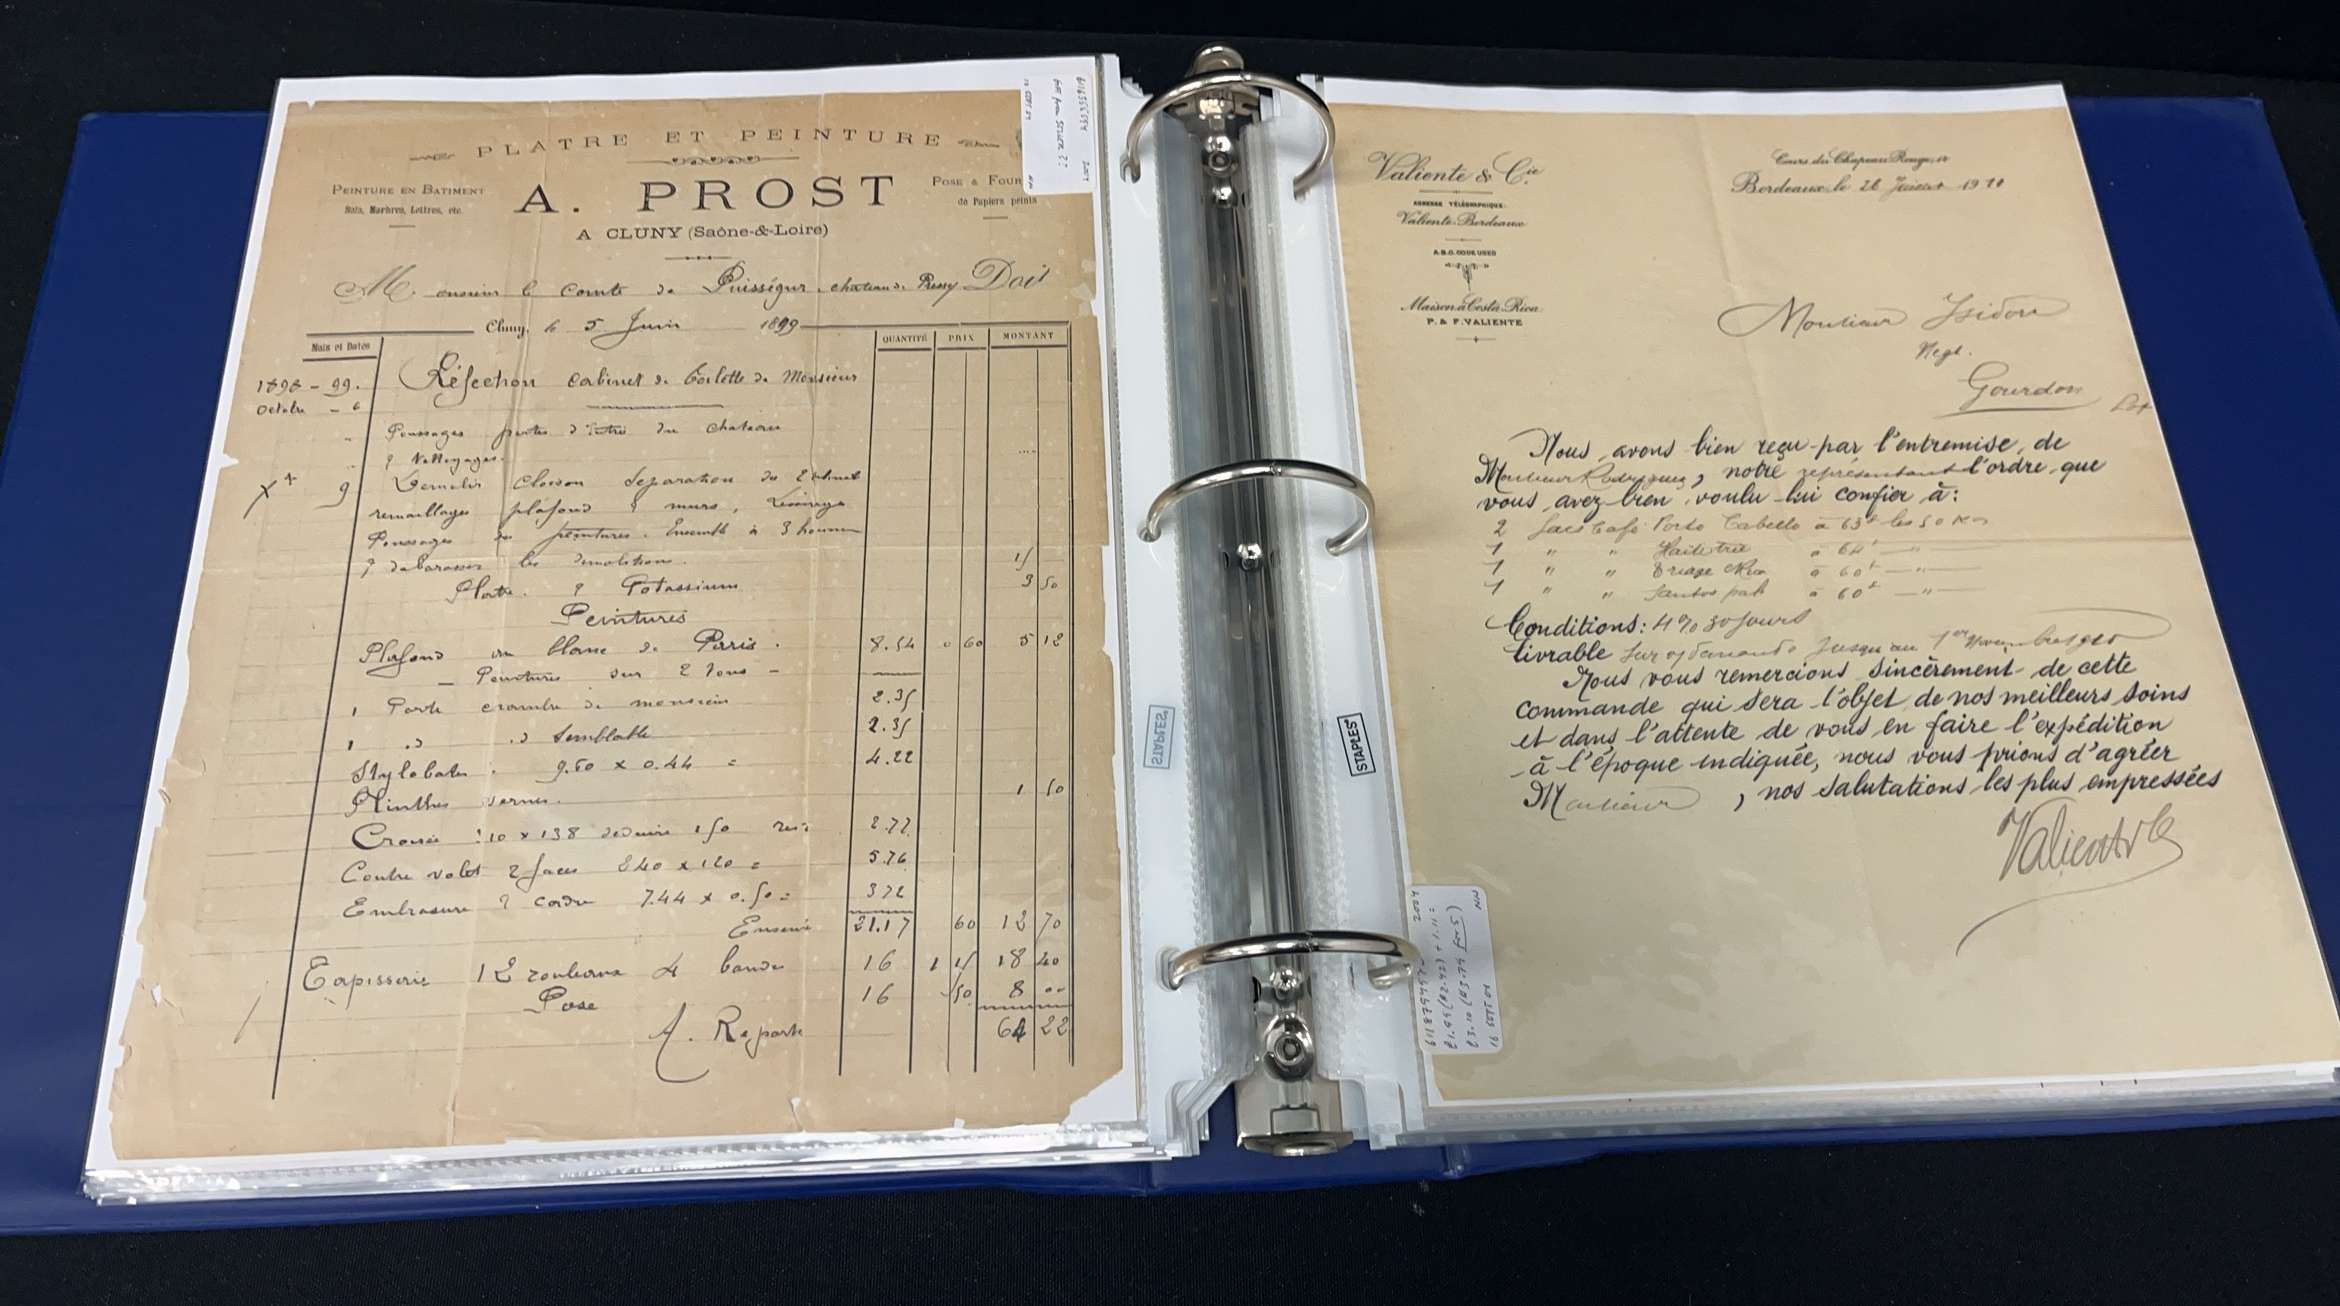 PLATRE ET PEINTURE
PEINTURE EN BATIMENT
Bois, Marbres, Lettres, etc.
A. PROST
POSE & FOUR
de Papiers peints
A CLUNY (Saône-&-Loire)
Monsieur le Comte de Puiségur, chateau de Pressy Doit
Cluny, le 5 Juin 1899
Mois et Dates
QUANTITÉ PRIX MONTANT
1898-99. Réfection cabinet de toilette de Monsieur
Octobre - 6
Ponssages portes d'entrée du chateau
& Nettoyages.
9 Demolir cloison separation du Cabinet
remaillages plafond & murs, Lessivage
Ponssages des peintures. Ensemble à 3 hommes
& debarasser les demolitions. 15
Platre. & Potassium 3 50
Peintures
Plafond au blanc de Paris. 8.54 0 60 5 12
- Peintures sur 2 tons -
1 Porte chambre de monsieur 2.35
1 " " Semblable 2.35
Stylobates 9.60 x 0.44 = 4.22
Plinthes vernis. 1 50
Croisée 210 x 138 deduire 150 2.77
Contre volet 2 faces 240 x 120 = 5.76
Embrasure & cadre 7.44 x 0.50 = 3 72
21.17 60 12 70
Tapisserie 12 rouleaux 4 bande 16 1 15 18 40
Pose 16 50 8 00
A. Reporter 64 22
Valiente & Cie
ADRESSE TÉLÉGRAPHIQUE:
Valiente-Bordeaux
A.B.C. CODE USED
Maison à Costa-Rica
P. & F. VALIENTE
Cours du Chapeau Rouge,
Bordeaux, le 26 Juillet 1910
Monsieur Isidore
Negt.
Gourdon
Lot
Nous avons bien reçu par l'entremise de
Monsieur Rodriguez, notre représentant l'ordre que
vous avez bien voulu lui confier à:
2 Sacs Café Porto Cabello à 63f les 50 Kos
1 " " Haïti trié à 64f — " —
1 " " Triage à 60f — " —
1 " " Santos à 60f — " —
Conditions: 4% 30 jours
livrable sur demande jusqu'au 1er Novembre 1910
Nous vous remercions sincèrement de cette
commande qui sera l'objet de nos meilleurs soins
et dans l'attente de vous en faire l'expédition
à l'époque indiquée, nous vous prions d'agréer
Monsieur, nos salutations les plus empressées
Valiente & Cie
STAPLES
STAPLES
2004
16 SEPT 04